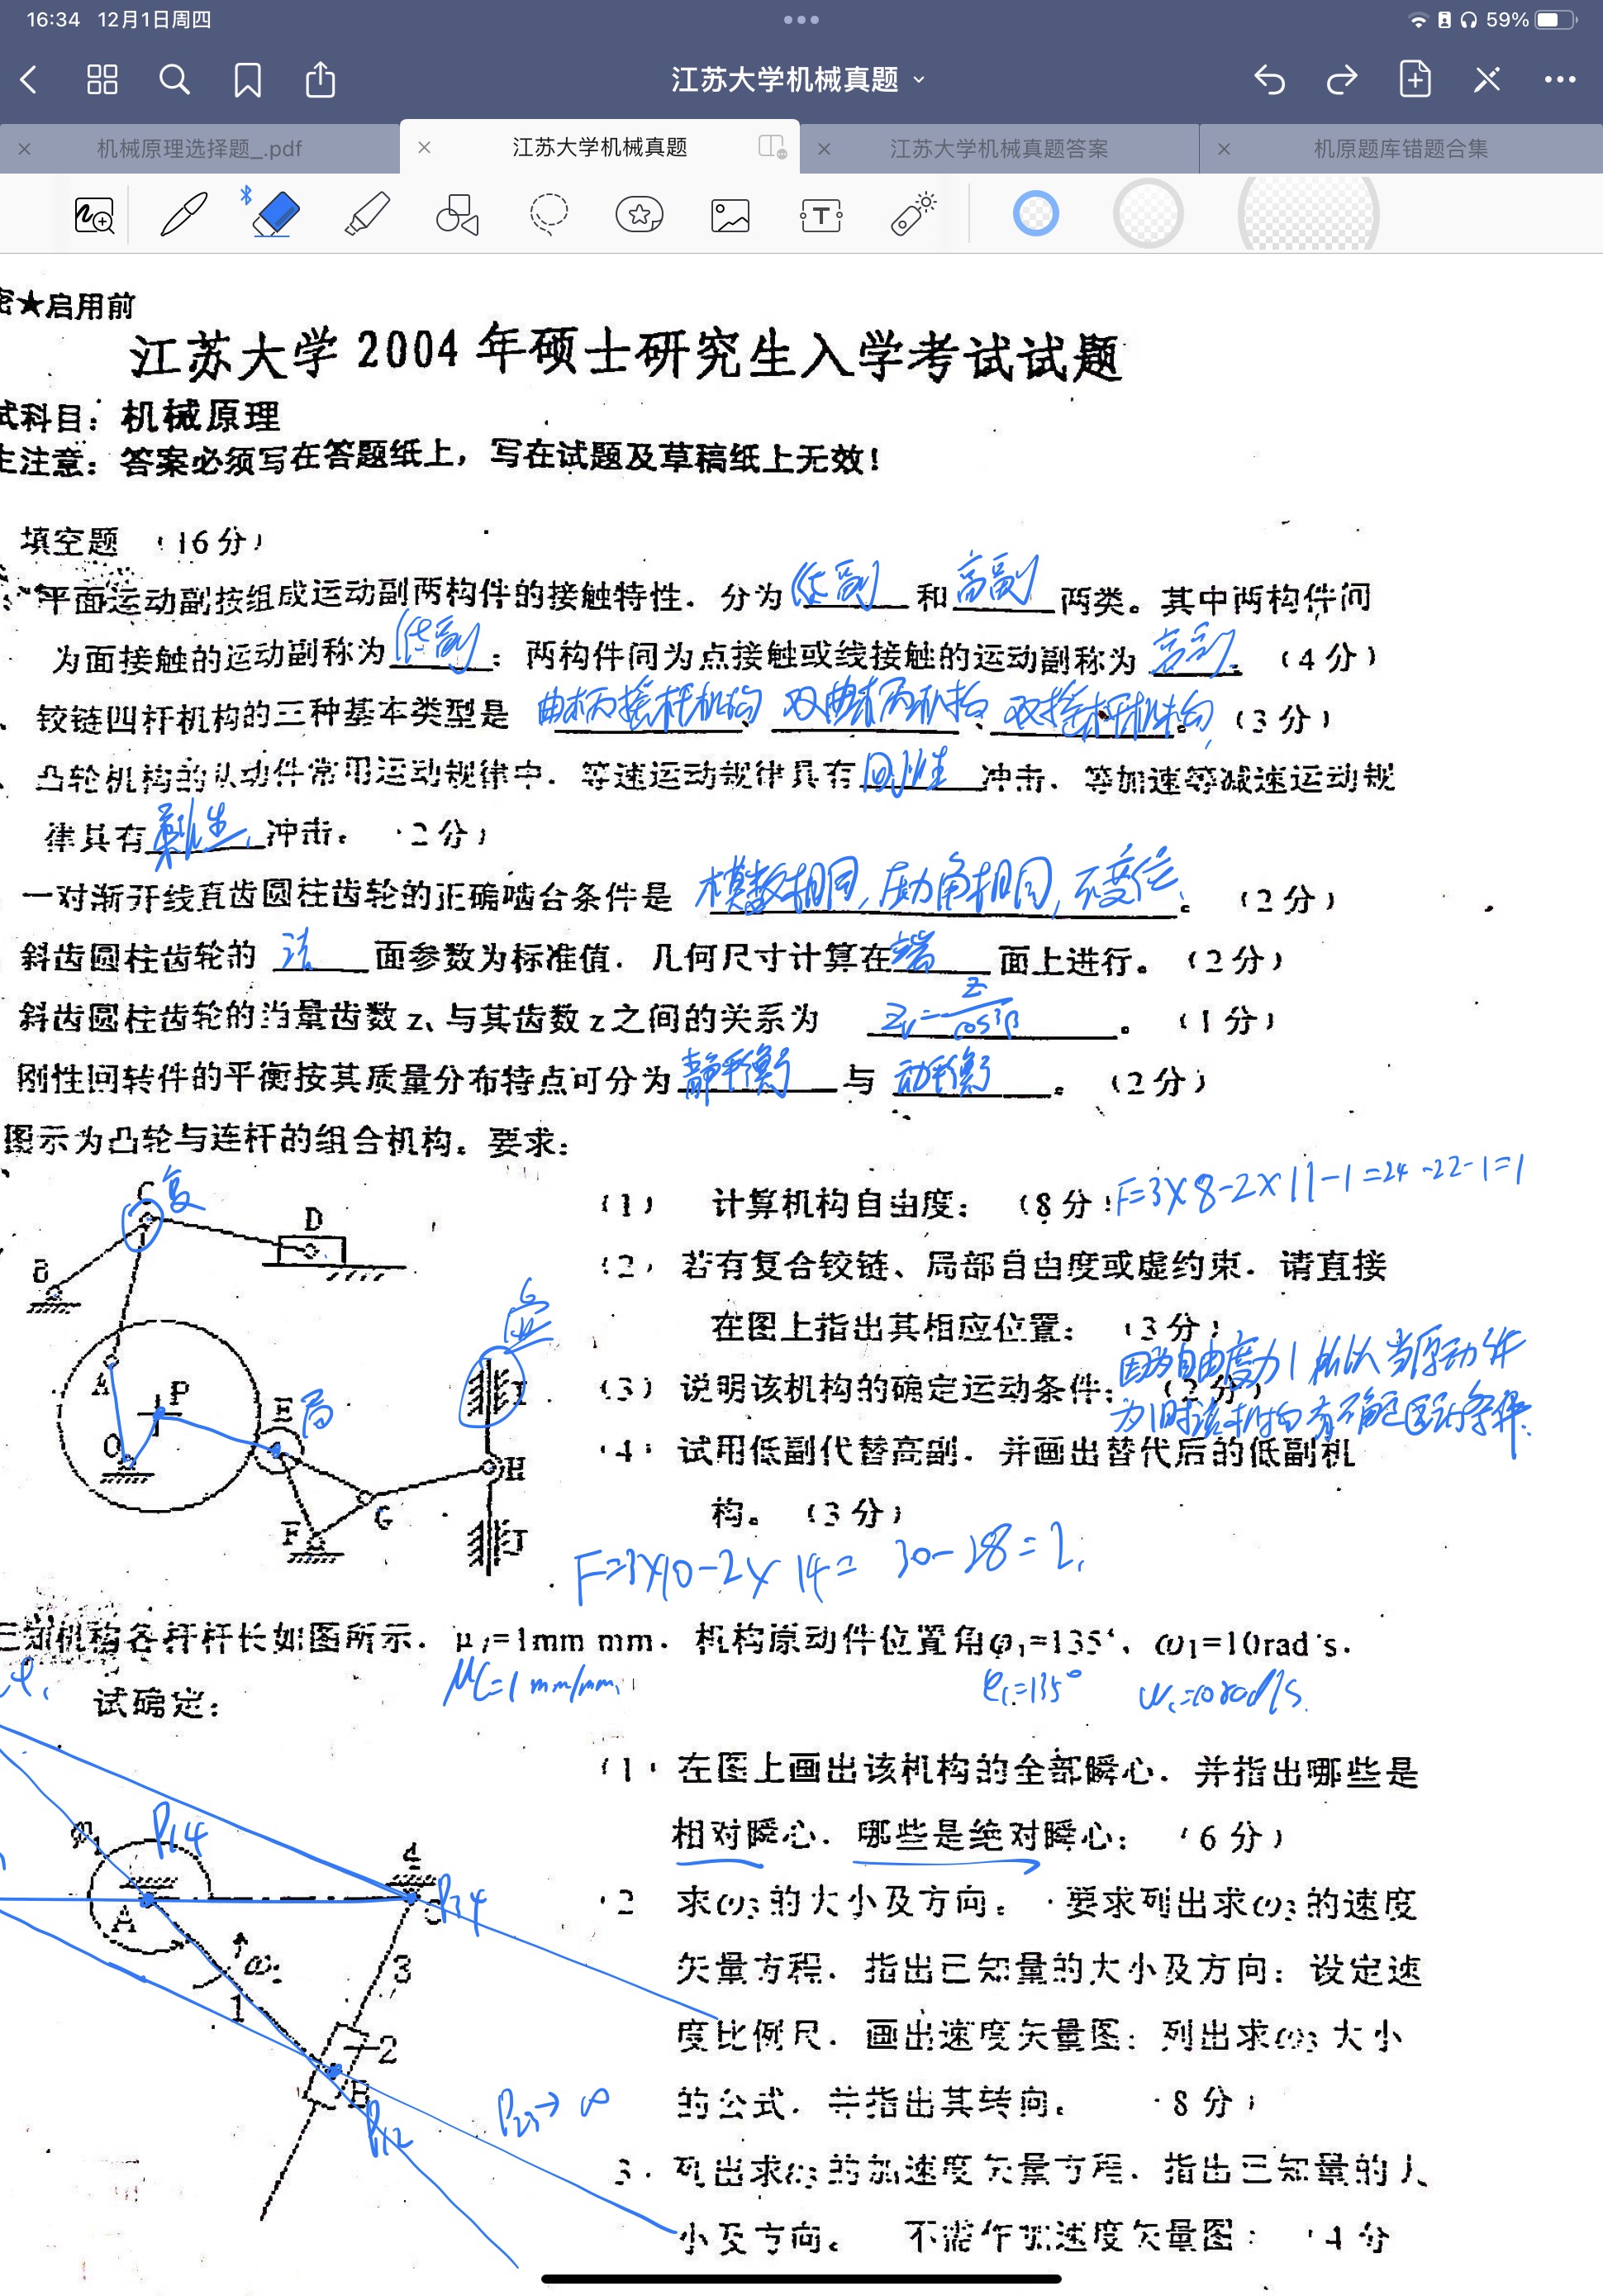 16:34 12月1日周四
59%
江苏大学机械真题
机械原理选择题_.pdf
江苏大学机械真题
江苏大学机械真题答案
机原题库错题合集
密★启用前
江苏大学 2004 年硕士研究生入学考试试题
试科目：机械原理
注意：答案必须写在答题纸上，写在试题及草稿纸上无效！
填空题 （16分）
平面运动副按组成运动副两构件的接触特性，分为 低副 和 高副 两类。其中两构件间
为面接触的运动副称为 低副 ；两构件间为点接触或线接触的运动副称为 高副 。（4分）
铰链四杆机构的三种基本类型是 曲柄摇杆机构 、 双曲柄机构 、 双摇杆机构 。（3分）
凸轮机构的从动件常用运动规律中，等速运动规律具有 刚性 冲击，等加速等减速运动规
律具有 柔性 冲击。（2分）
一对渐开线直齿圆柱齿轮的正确啮合条件是 模数相同，压力角相同，不变位 。（2分）
斜齿圆柱齿轮的 法 面参数为标准值，几何尺寸计算在 端 面上进行。（2分）
斜齿圆柱齿轮的当量齿数 zv 与其齿数 z 之间的关系为 Zv=z/cos³β 。（1分）
刚性回转件的平衡按其质量分布特点可分为 静平衡 与 动平衡 。（2分）
图示为凸轮与连杆的组合机构。要求：
（1） 计算机构自由度；（8分） F=3×8-2×11-1=24-22-1=1
（2） 若有复合铰链、局部自由度或虚约束，请直接
在图上指出其相应位置；（3分）
（3） 说明该机构的确定运动条件；（2分）
因为自由度为1 所以当原动件
为1时该机构有确定运动条件.
（4） 试用低副代替高副，并画出替代后的低副机
构。（3分）
F=3×10-2×14= 30-28=2
C 复
D
B
A
P
O
E 局
F
G
H
虚
I
J
已知机构各杆杆长如图所示，μl=1mm mm，机构原动件位置角φ1=135°，ω1=10rad s．
μl=1mm/mm φ1=135° ω1=10rad/s.
试确定：
（1） 在图上画出该机构的全部瞬心，并指出哪些是
相对瞬心，哪些是绝对瞬心；（6分）
2 求ω3的大小及方向。要求列出求ω3的速度
矢量方程，指出已知量的大小及方向；设定速
度比例尺，画出速度矢量图；列出求ω3大小
的公式，并指出其转向。8分）
3． 列出求 的加速度矢量方程，指出已知量的大
小及方向。 不需作加速度矢量图； 4分
P14
4
P34
A
ω1
1
3
2
B
P12
P23→∞